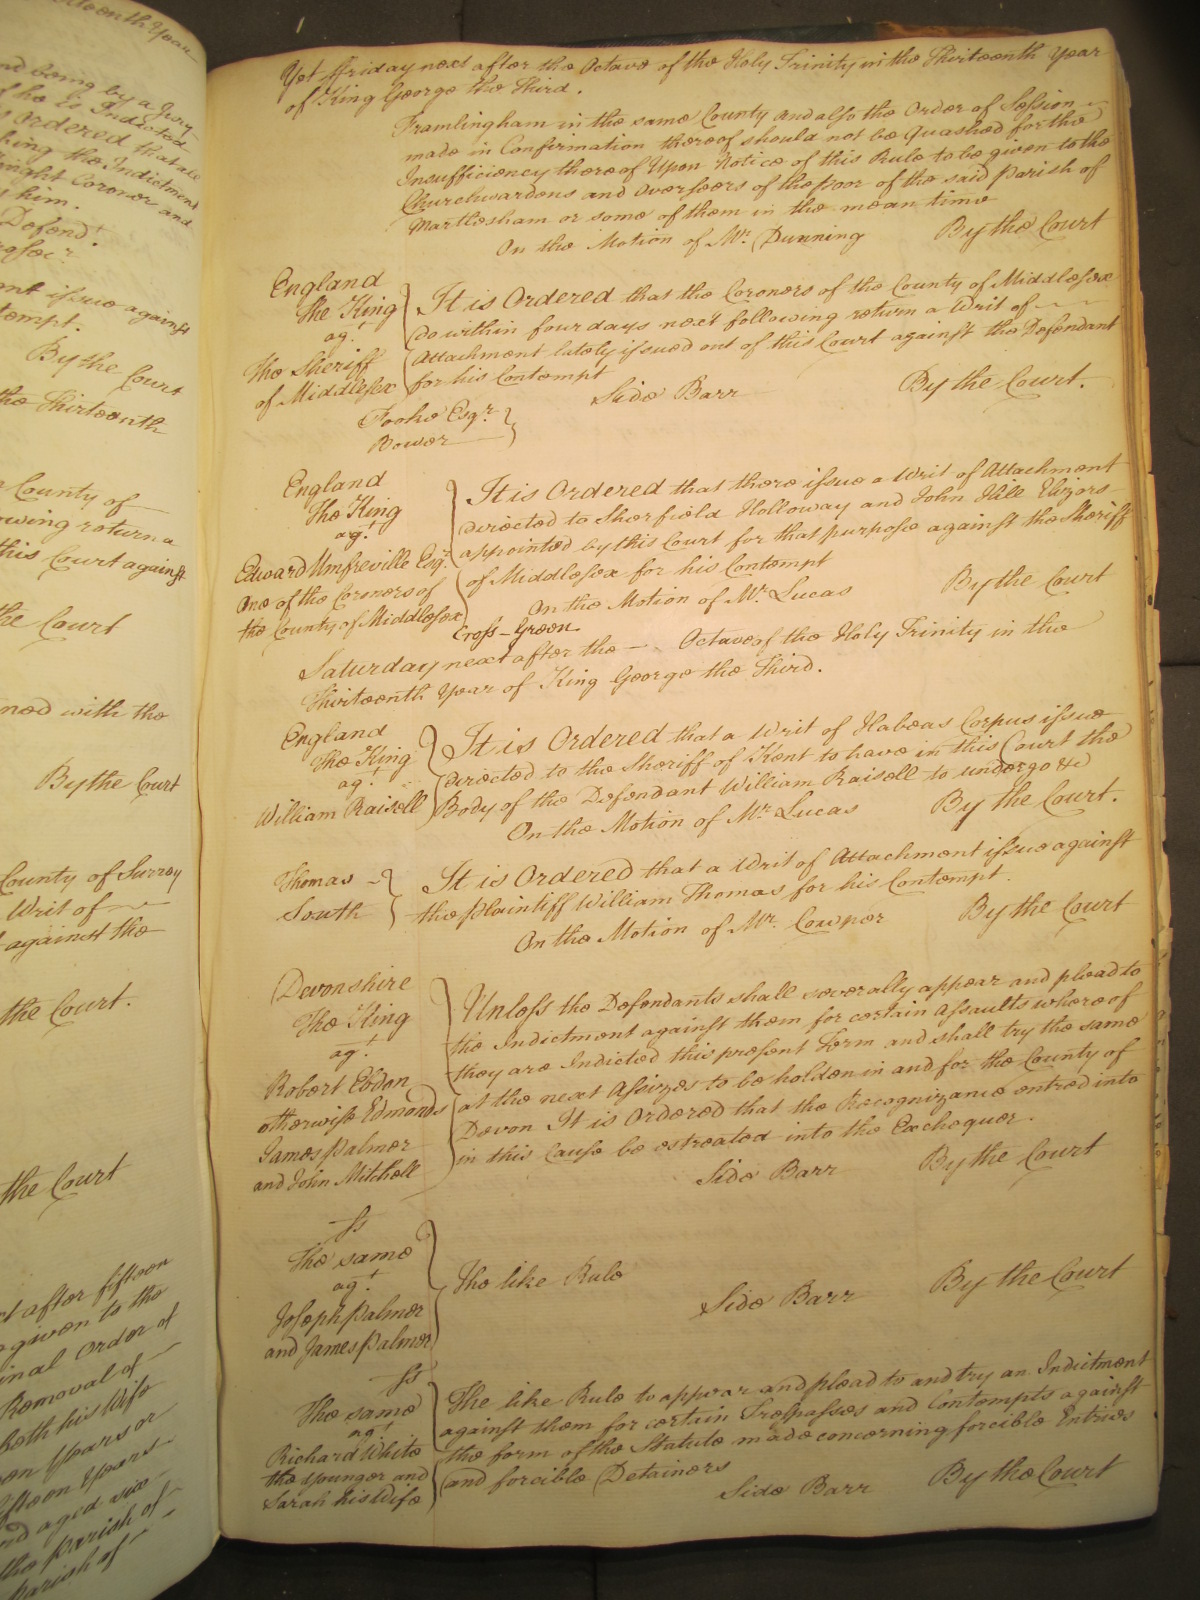 teenth Year
and being by a Jury
he is Indicted
Ordered that
the Indictment
Knight Coroner and
him.
Defend.t
issue against
tempt.
By the Court
the Thirteenth
County of
owing return a
this Court against
the Court
ned with the
By the Court
County of Surrey
Writ of
against the
the Court.
the Court
after fifteen
given to the
inal Order of
Removal of
beth his Wife
Years or
fifteen Years
and aged six
the Parish of
Parish of
Yet Friday next after the Octave of the Holy Trinity in the Thirteenth Year
of King George the Third.
Framlingham in the same County and also the Order of Session
made in Confirmation thereof should not be Quashed for the
Insufficiency thereof Upon Notice of this Rule to be given to the
Churchwardens and Overseers of the Poor of the said Parish of
Martlesham or some of them in the mean time
On the Motion of Mr. Dunning By the Court
England
The King
ag.t
The Sheriff
of Middlesex
It is Ordered that the Coroners of the County of Middlesex
do within four days next following return a Writ of
Attachment lately issued out of this Court against the Defendant
for his Contempt
Side Barr By the Court.
Tooke Esq.r
Bower
England
The King
ag.t
Edward Umfreville Esq.r
One of the Coroners of
the County of Middlesex
It is Ordered that there issue a Writ of Attachment
directed to Sherfield Holloway and John Hill Elizors
appointed by this Court for that purpose against the Sheriff
of Middlesex for his Contempt
On the Motion of Mr. Lucas By the Court
Cross - Green
Saturday next after the — Octave of the Holy Trinity in the
Thirteenth Year of King George the Third.
England
The King
ag.t
William Raisell
It is Ordered that a Writ of Habeas Corpus issue
directed to the Sheriff of Kent to have in this Court the
Body of the Defendant William Raisell to undergo &c
On the Motion of Mr. Lucas By the Court.
Thomas
South
It is Ordered that a Writ of Attachment issue against
the Plaintiff William Thomas for his Contempt.
On the Motion of Mr. Cowper By the Court
Devonshire
The King
ag.t
Robert Ebdon
otherwise Edmonds
James Palmer
and John Mitchell
Unless the Defendants shall severally appear and plead to
the Indictment against them for certain Assaults whereof
they are Indicted this present Term and shall try the same
at the next Assizes to be holden in and for the County of
Devon It is Ordered that the Recognizance entred into
in this Cause be estreated into the Exchequer.
Side Barr By the Court
Ss
The same
ag.t
Joseph Palmer
and James Palmer
The like Rule
Side Barr By the Court
Ss
The same
ag.t
Richard White
the younger and
Sarah his Wife
The like Rule to appear and plead to and try an Indictment
against them for certain Trespasses and Contempts against
the form of the Statute made concerning forcible Entries
and forcible Detainers
Side Barr By the Court